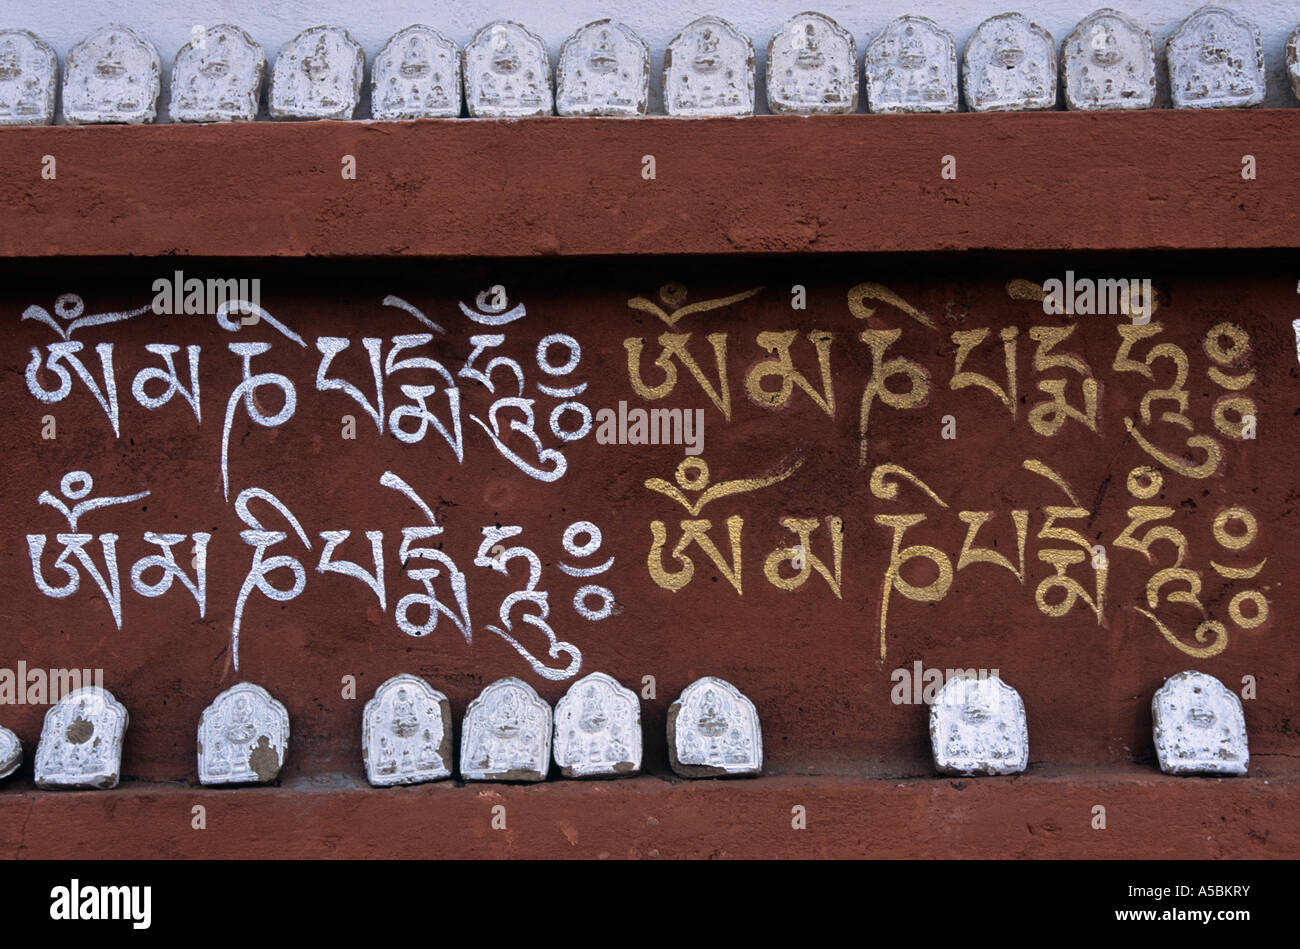 ཨོཾ མ ཎི པདྨེ ཧཱུྃ༔ ཨོཾ མ ཎི པདྨེ ཧཱུཾ༔
ཨོཾ མ ཎི པདྨེ ཧཱུ༔ ཨོཾ མ ཎི པདྨེ ཧཱུཾ༔
alamy
Image ID: A5BKRY
www.alamy.com